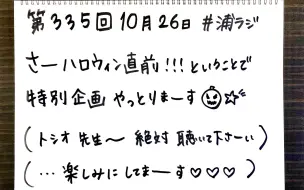 第335回 10月26日 #浦ラジ
さーハロウィン直前!!!ということで
特別企画 やっとりまーす🎃☆彡
(トシオ先生〜 絶対 聴いて下さーい)
(…楽しみに してまーす♡♡♡)